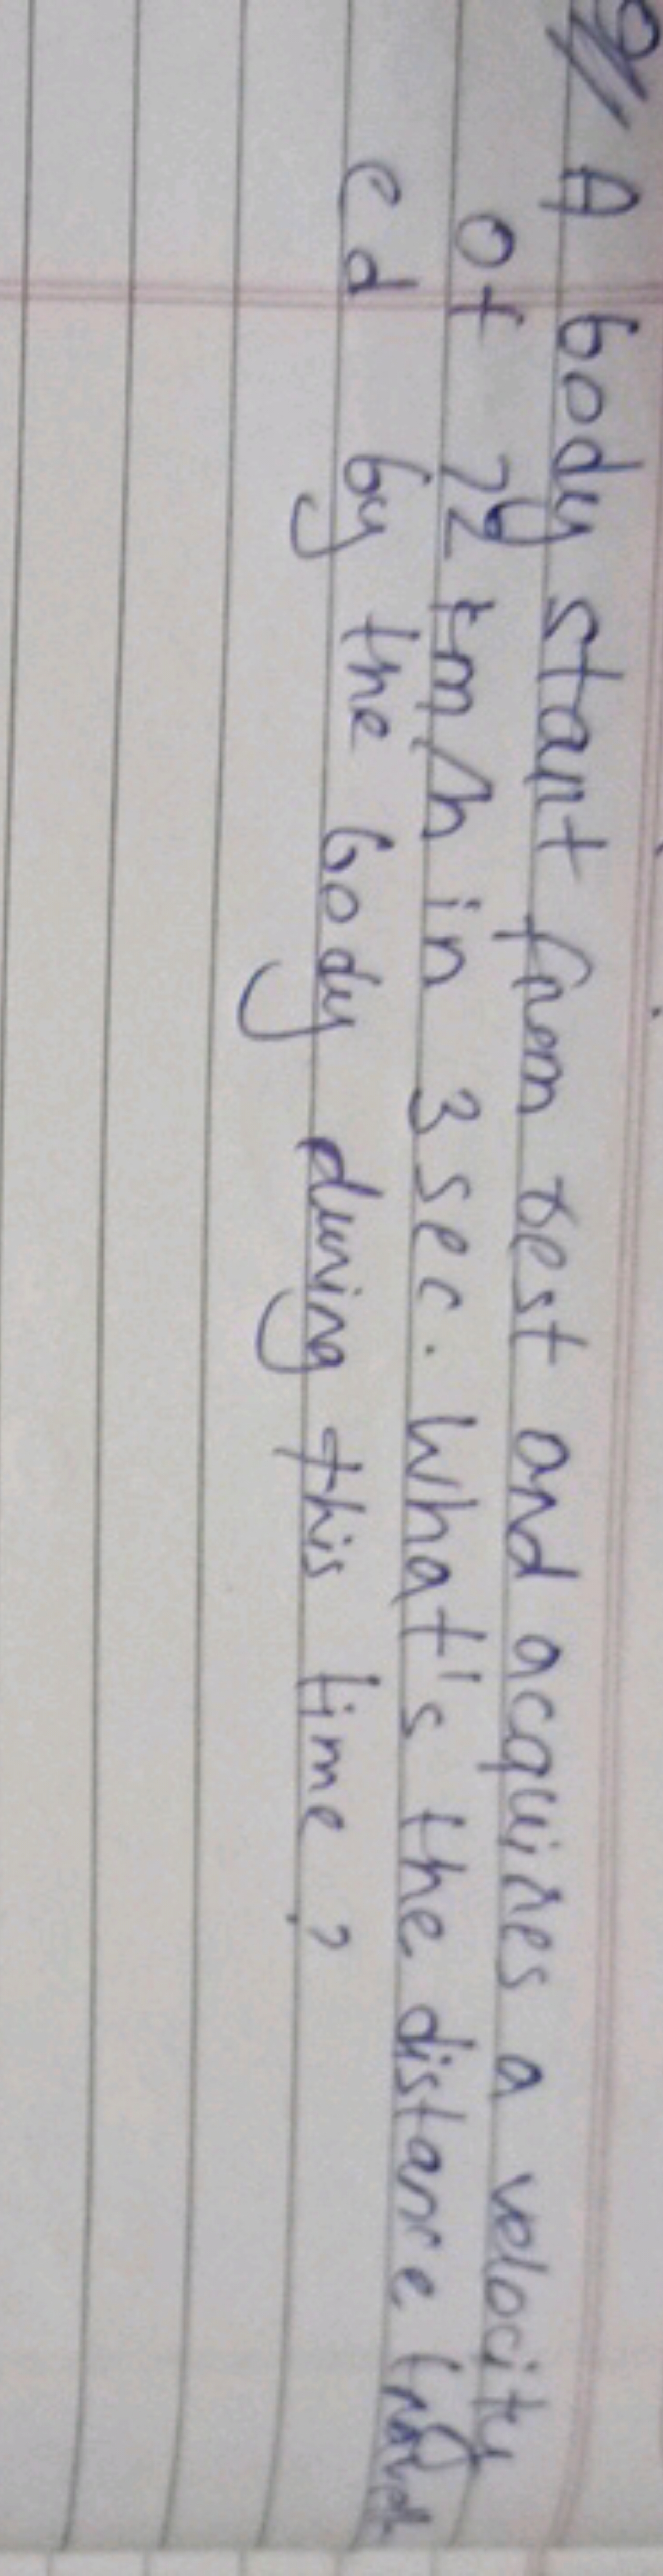 Q// A body start from rest and acquires a velocity
of 72 km/h in 3 sec. What's the distance travel
ed by the body during this time?